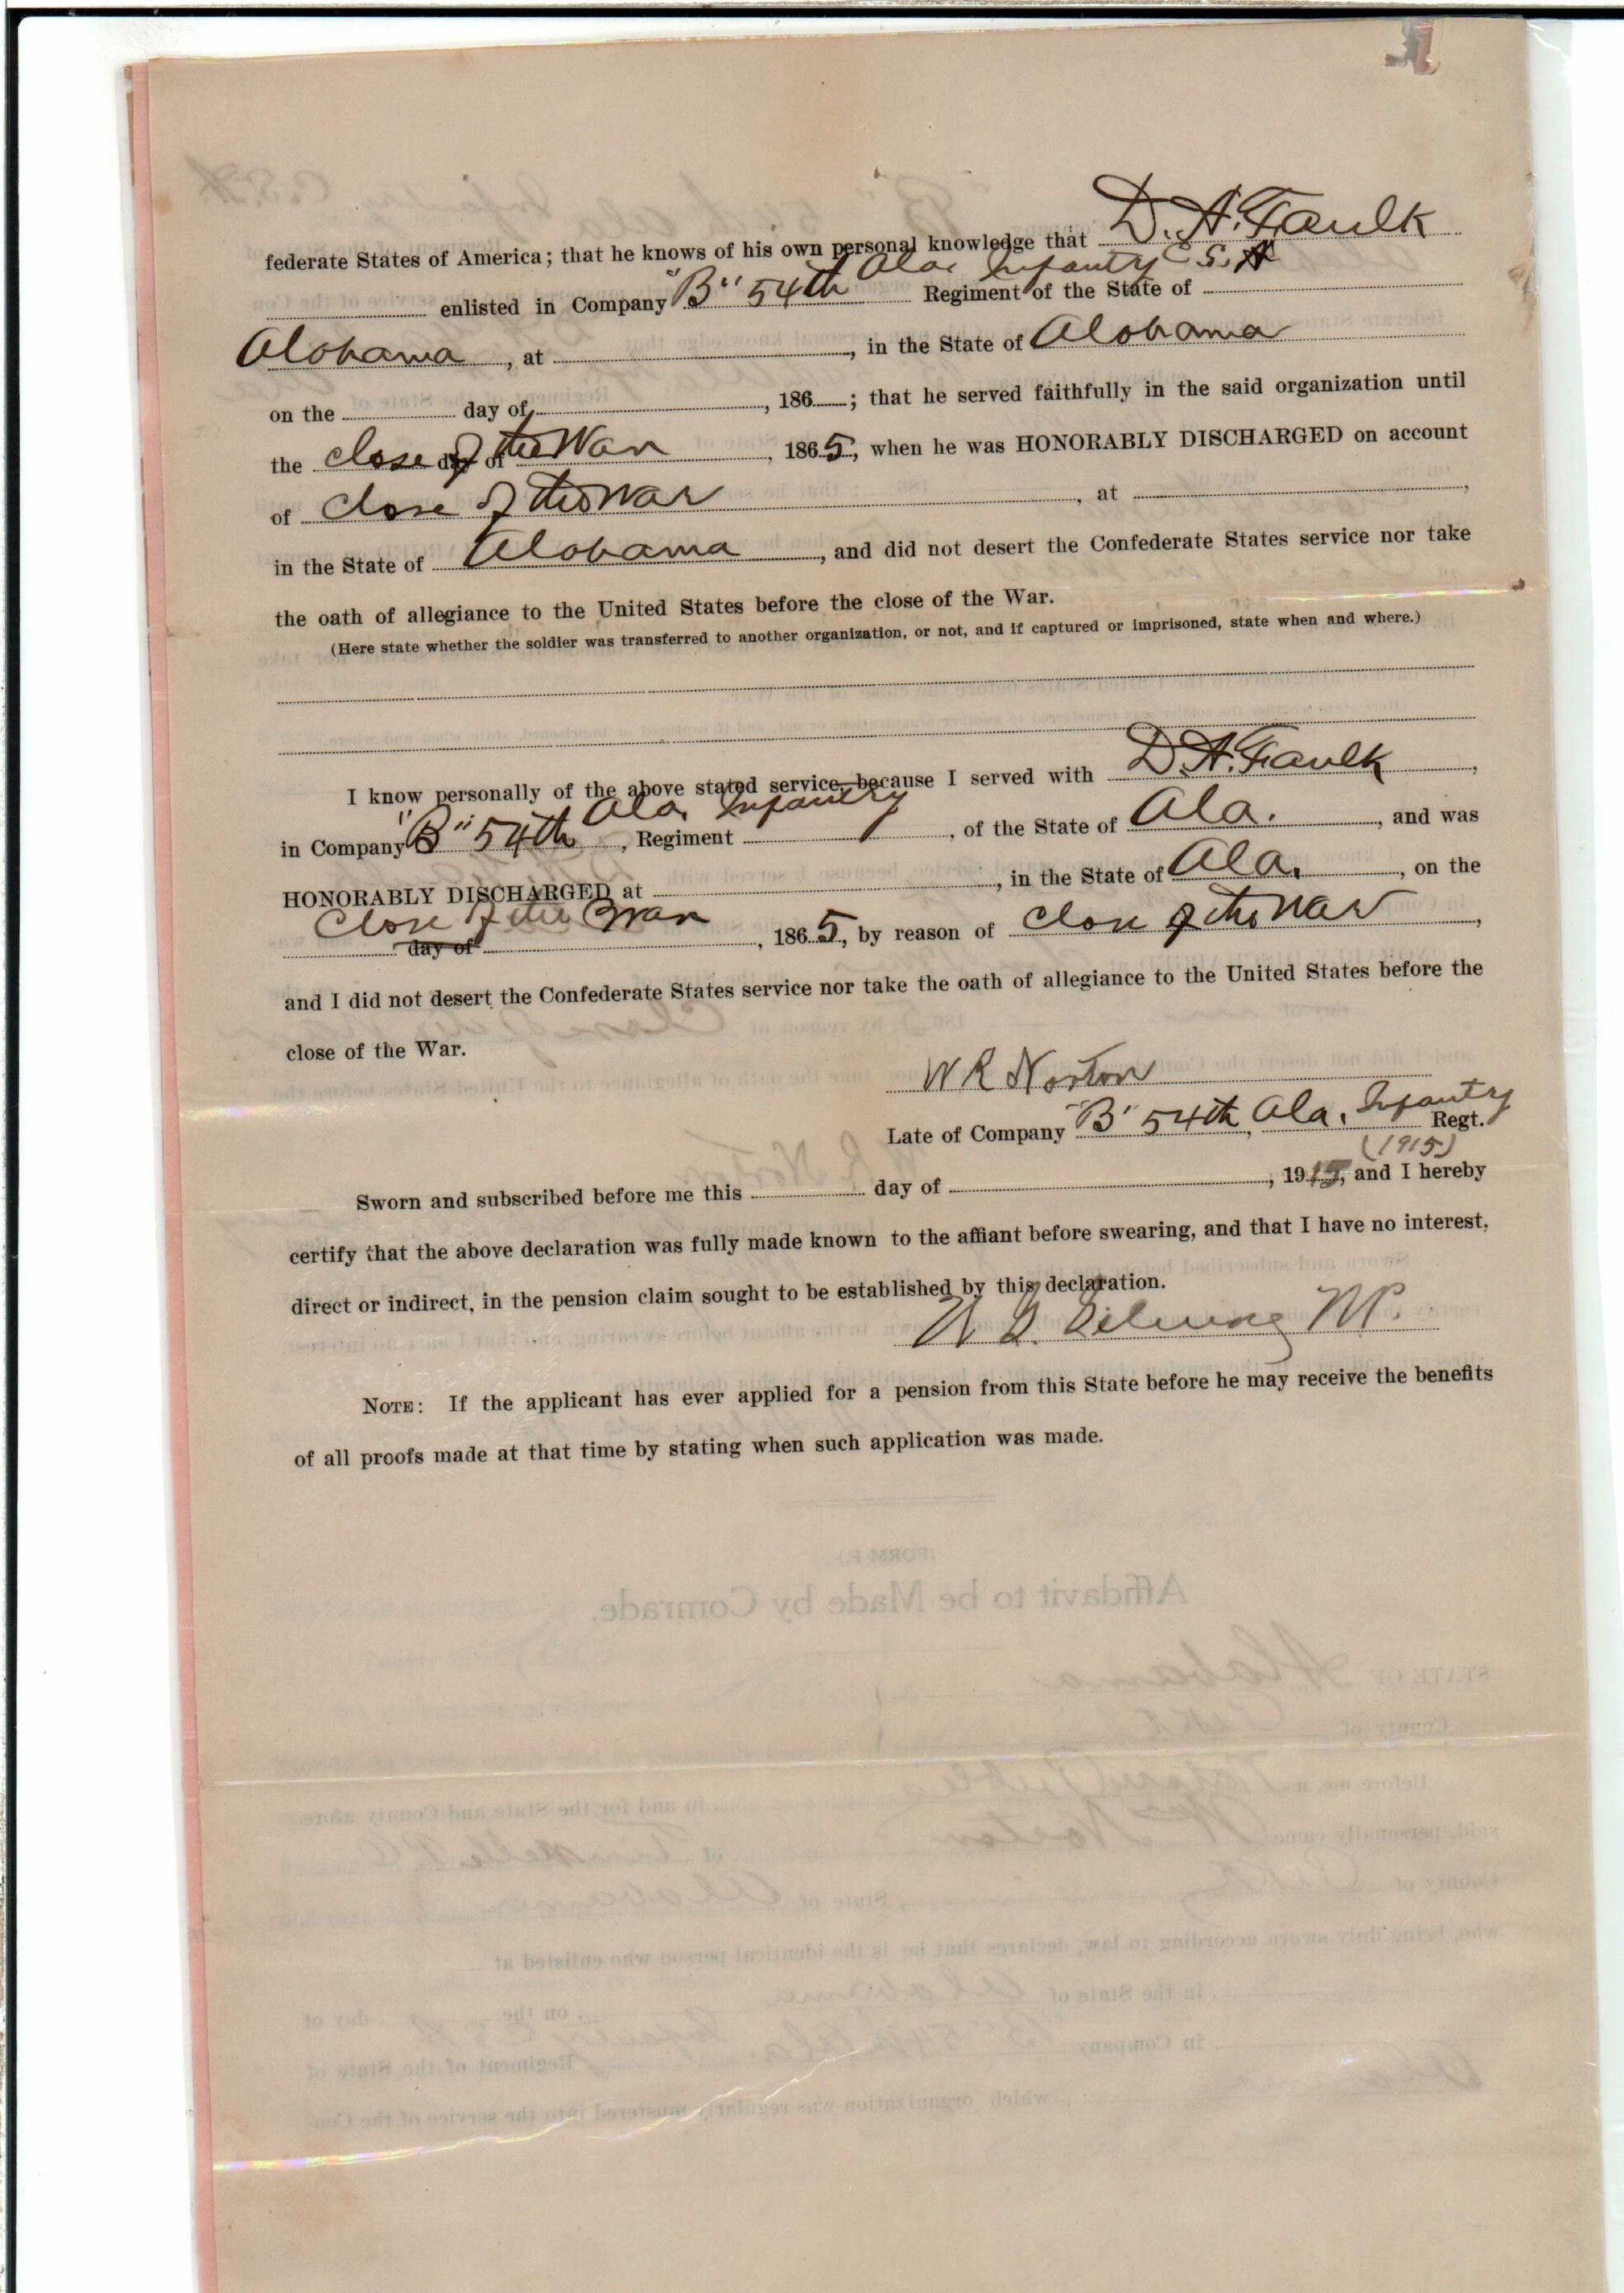 federate States of America; that he knows of his own personal knowledge that D. A. Faulk
enlisted in Company "B" 54th Ala. Infantry C. S. A Regiment of the State of
Alabama, at , in the State of Alabama
on the day of , 186 ; that he served faithfully in the said organization until
the close of the War day of , 1865, when he was HONORABLY DISCHARGED on account
of Close of the War , at ,
in the State of Alabama, and did not desert the Confederate States service nor take
the oath of allegiance to the United States before the close of the War.
(Here state whether the soldier was transferred to another organization, or not, and if captured or imprisoned, state when and where.)
I know personally of the above stated service because I served with D. A. Faulk,
in Company "B" 54th Ala. Infantry, Regiment , of the State of Ala., and was
HONORABLY DISCHARGED at , in the State of Ala., on the
Close of the War day of , 1865, by reason of Close of the War,
and I did not desert the Confederate States service nor take the oath of allegiance to the United States before the
close of the War.
W R Norton
Late of Company "B" 54th, Ala. Infantry Regt.
(1915)
Sworn and subscribed before me this day of , 1915, and I hereby
certify that the above declaration was fully made known to the affiant before swearing, and that I have no interest,
direct or indirect, in the pension claim sought to be established by this declaration.
N.P.
NOTE: If the applicant has ever applied for a pension from this State before he may receive the benefits
of all proofs made at that time by stating when such application was made.